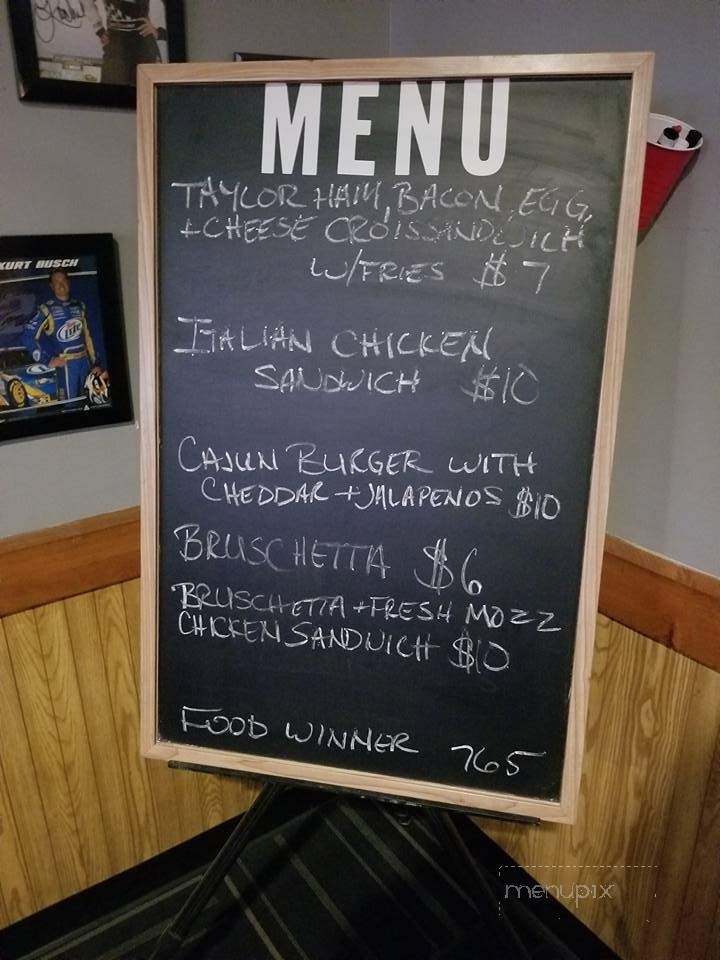 MENU
TAYLOR HAM, BACON, EGG,
+CHEESE CROISSANDWICH
W/FRIES $7
ITALIAN CHICKEN
SANDWICH $10
CAJUN BURGER WITH
CHEDDAR +JALAPENOS $10
BRUSCHETTA $6
BRUSCHETTA +FRESH MOZZ
CHICKEN SANDWICH $10
FOOD WINNER 765
KURT BUSCH
menupix